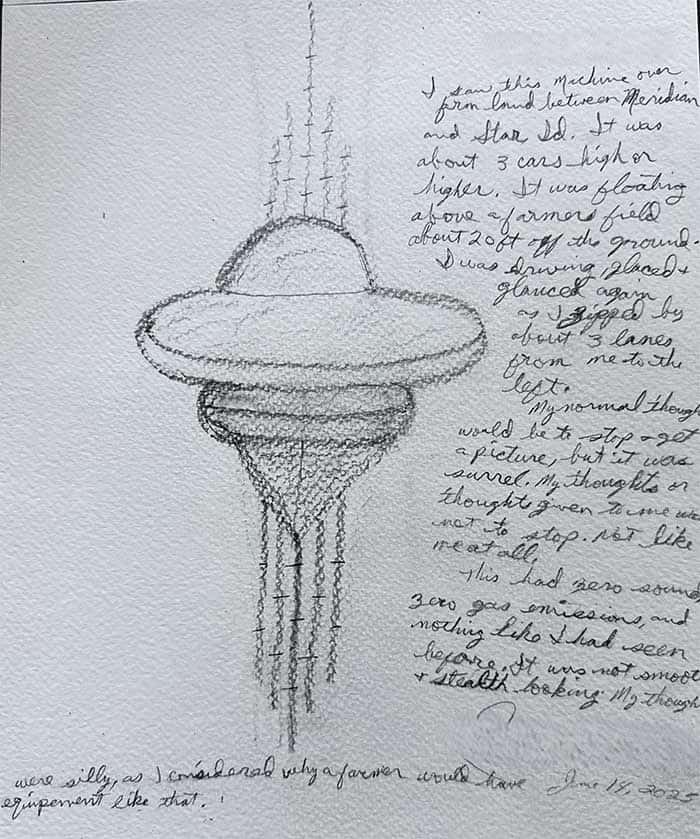 I saw this machine over
farm land between Meridian
and Star Id. It was
about 3 cars high or
higher. It was floating
above a farmers field
about 20 ft off the ground.
I was driving, glaced +
glanced again
as I zipped by
about 3 lanes
from me to the
left.
My normal though
would be to stop + get
a picture, but it was
surrel. My thoughts or
thoughts given to me we
not to stop. Not like
me at all.
This had zero sound
zero gas emissions, and
nothing like I had seen
before. It was not smoot
+ stealth looking. My though
were silly, as I considered why a farmer would have
equipement like that.
June 14, 2025